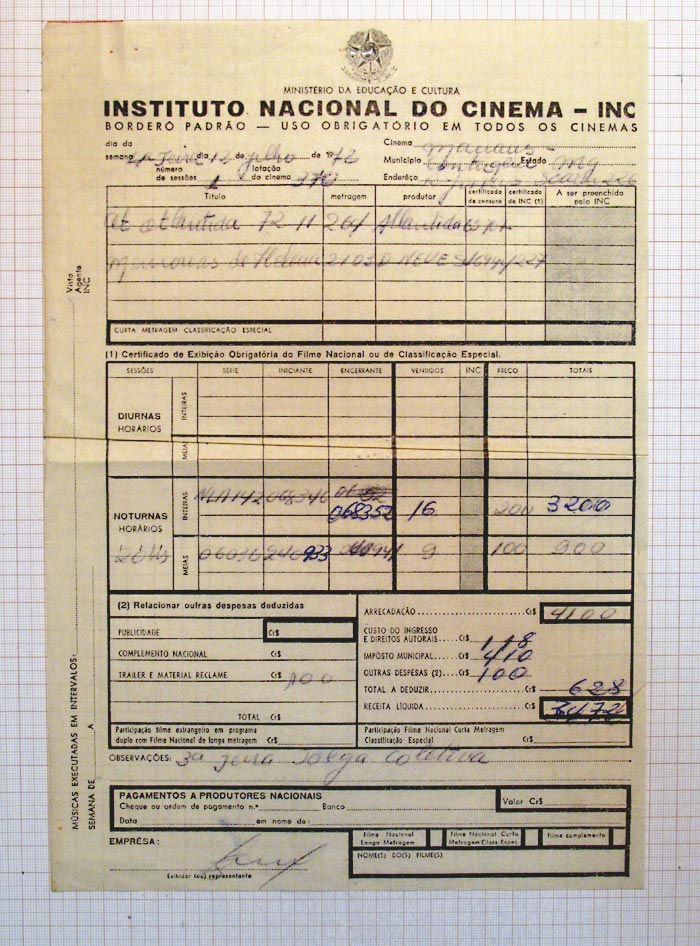 MINISTÉRIO DA EDUCAÇÃO E CULTURA
INSTITUTO NACIONAL DO CINEMA – INC
BORDERÔ PADRÃO — USO OBRIGATÓRIO EM TODOS OS CINEMAS
dia da semana 4ª Feira dia 12 de julho de 1972
Cinema
número de sessões 1 lotação do cinema 370
Município Contagem Estado MG
Endereço
Título metragem produtor certificado de censura certificado de INC (1) A ser preenchido pelo INC
Atlântida 72 11 264 Atlântida
de Helena 2103 D NEVES
CURTA METRAGEM CLASSIFICAÇÃO ESPECIAL
Visto Agente INC
(1) Certificado de Exibição Obrigatória do Filme Nacional ou de Classificação Especial.
SESSÕES SÉRIE INICIANTE ENCERRANTE VENDIDOS INC PREÇO TOTAIS
DIURNAS HORÁRIOS INTEIRAS
MEIAS
NOTURNAS HORÁRIOS INTEIRAS 068352 16 200 3200
MEIAS 9 100 900
(2) Relacionar outras despesas deduzidas
PUBLICIDADE Cr$
COMPLEMENTO NACIONAL Cr$
TRAILER E MATERIAL RECLAME Cr$ 100
TOTAL Cr$
ARRECADAÇÃO Cr$ 4100
CUSTO DO INGRESSO E DIREITOS AUTORAIS Cr$ 118
IMPÔSTO MUNICIPAL Cr$ 410
OUTRAS DESPESAS (2) Cr$ 100
TOTAL A DEDUZIR Cr$ 628
RECEITA LÍQUIDA Cr$ 3472
Participação filme estrangeiro em programa duplo com Filme Nacional de longa metragem Cr$
Participação Filme Nacional Curta Metragem Classificação Especial Cr$
OBSERVAÇÕES: 3ª feira folga coletiva
MÚSICAS EXECUTADAS EM INTERVALOS:
SEMANA DE A
PAGAMENTOS A PRODUTORES NACIONAIS
Cheque ou ordem de pagamento n.º Banco
Valor Cr$
Data em nome de:
EMPRÊSA:
Exibidor (ou) representante
Filme Nacional Longa Metragem
Filme Nacional Curta Metragem Class. Espec.
Filme complemento
NOME(S) DO(S) FILME(S)